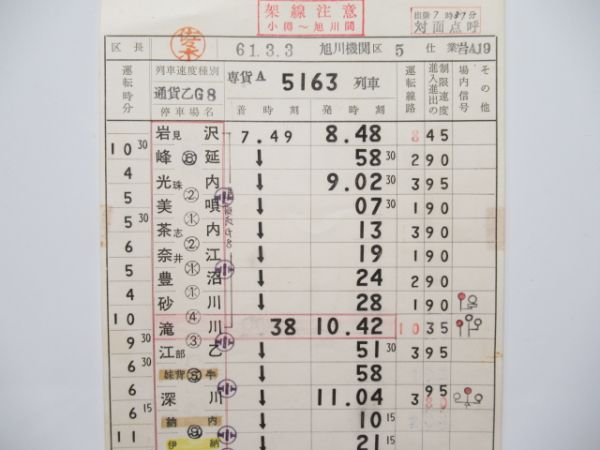 架線注意
小樽～旭川間
対面点呼
区長 佐々木 61.3.3 旭川機関区 5 仕業 岩A19
運転時分 列車速度種別 専貨A 5163 列車 運転線路 制限速度 進入進出の 場内信号 その他
通貨乙G8
停車場名 着時刻 発時刻
岩見沢 7.49 8.48 8 45
10 30 峰延 ↓ 58 30 2 90
4 光珠内 ↓ 9.02 30 3 95
5 美唄 ↓ 07 30 1 90
5 30 茶志内 ↓ 13 3 90
6 奈井江 ↓ 19 1 90
5 豊沼 ↓ 24 2 90
4 砂川 ↓ 28 1 90
10 滝川 38 10.42 10 35
9 30 江部乙 ↓ 51 30 3 95
6 30 妹背牛 ↓ 58
6 深川 ↓ 11.04 3 95
6 15 納内 ↓ 10 15
11 伊納 ↓ 21 15